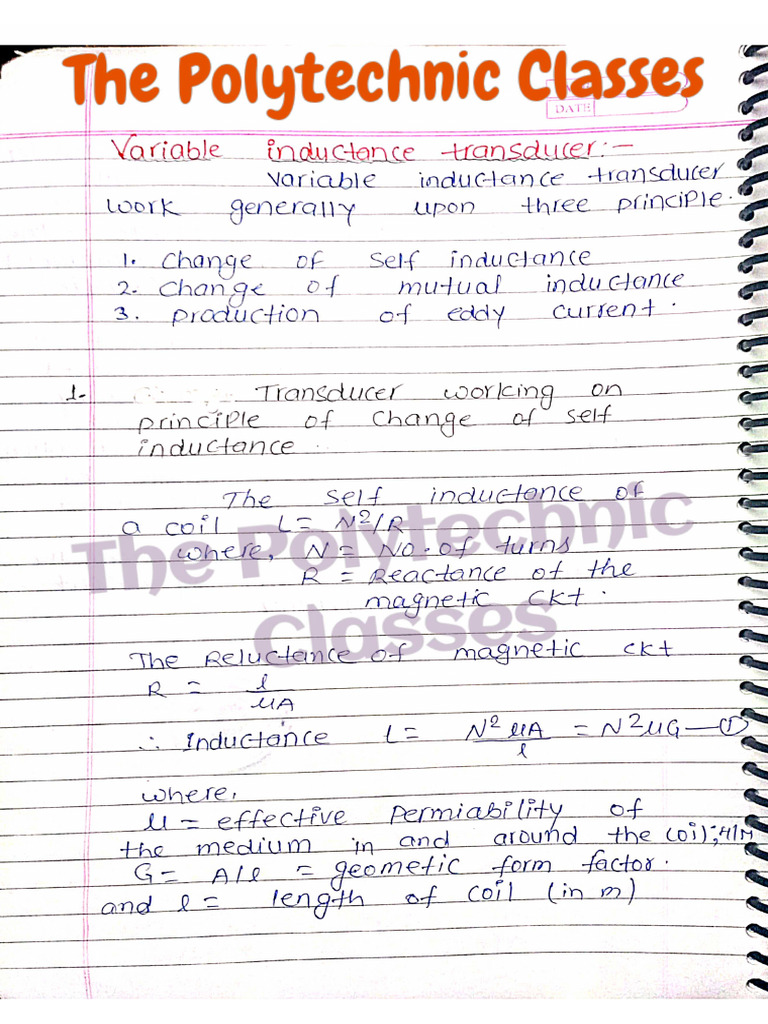 The Polytechnic Classes
DATE
Variable inductance transducer:-
Variable inductance transducer
work generally upon three principle.
1. Change of Self inductance
2. Change of mutual inductance
3. production of eddy current.
1- Transducer working on
principle of Change of self
inductance.
The Self inductance of
a coil L = N²/R
where, N = No. of turns
R = Reactance of the
magnetic ckt.
The Polytechnic
Classes
The Reluctance of magnetic ckt
R = l/μA
∴ Inductance L = N²μA/l = N²μG —①
where,
μ = effective Permiability of
the medium in and around the coil; H/M
G = A/l = geometic form factor.
and l = length of coil (in m)